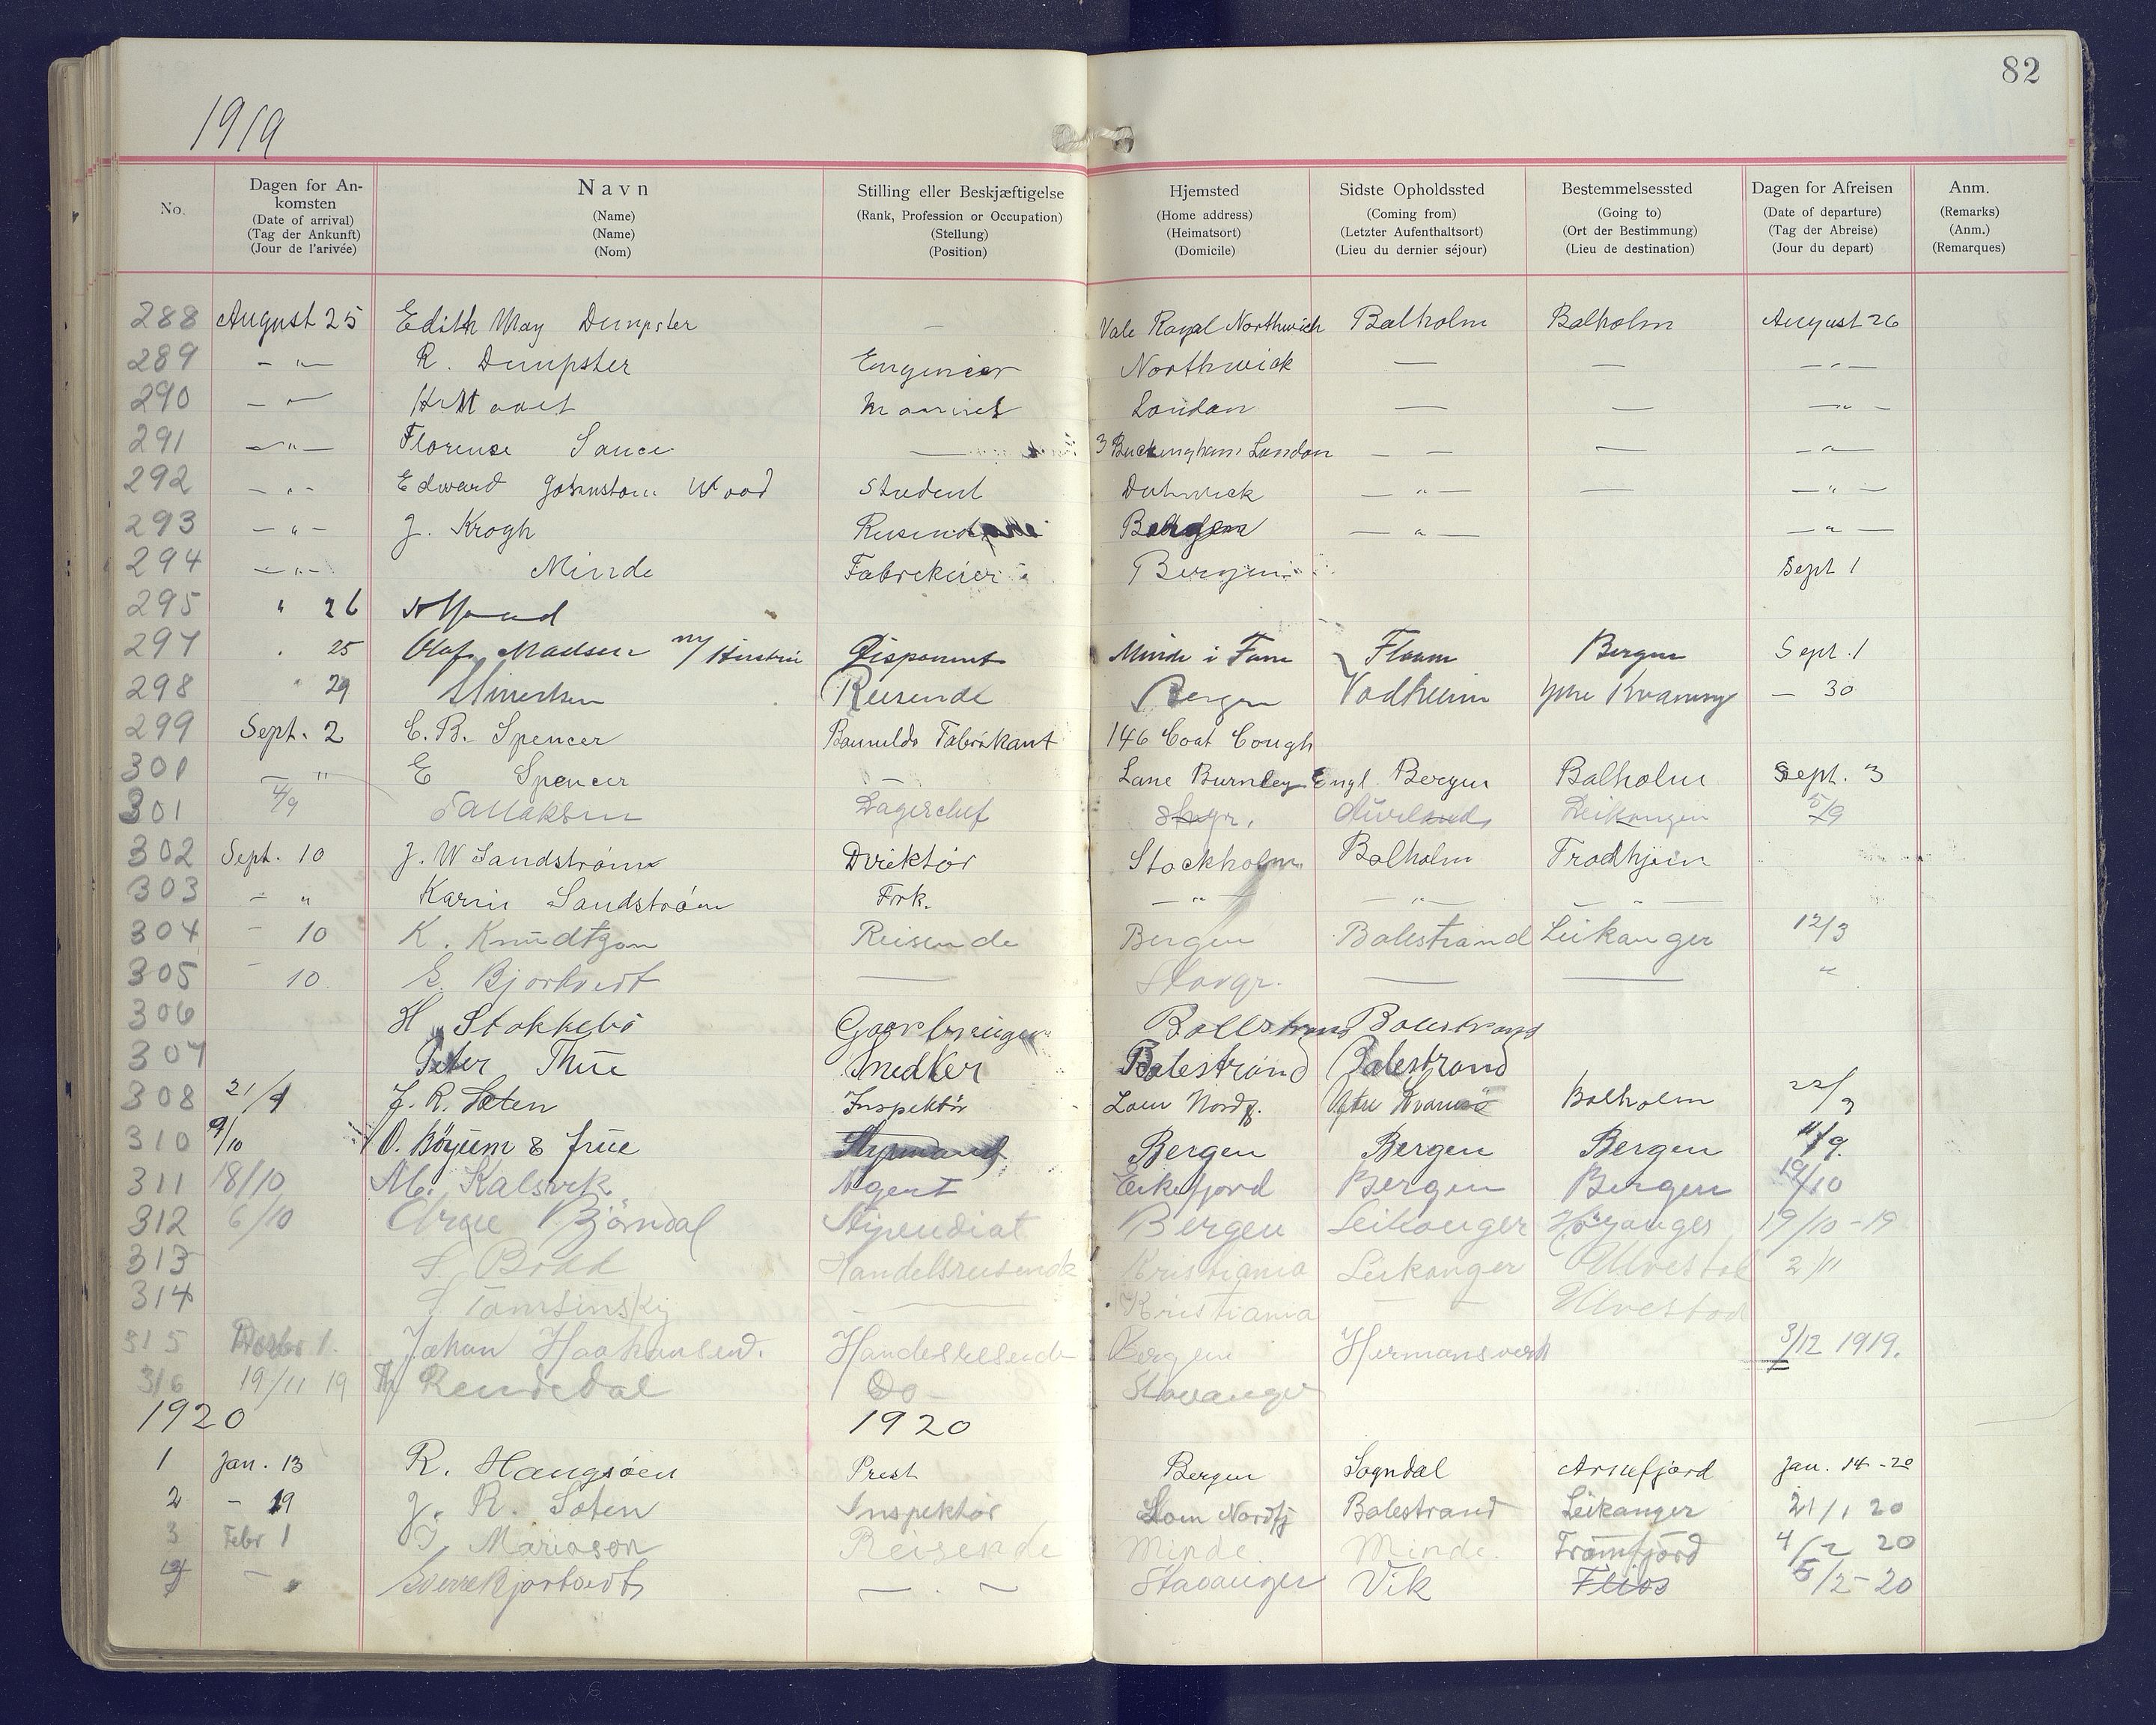 82
1919
No. Dagen for Ankomsten (Date of arrival) (Tag der Ankunft) (Jour de l'arivée) Navn (Name) (Name) (Nom) Stilling eller Beskjæftigelse (Rank, Profession or Occupation) (Stellung) (Position) Hjemsted (Home address) (Heimatsort) (Domicile) Sidste Opholdssted (Coming from) (Letzter Aufenthaltsort) (Lieu du dernier séjour) Bestemmelsessted (Going to) (Ort der Bestimmung) (Lieu de destination) Dagen for Afreisen (Date of departure) (Tag der Abreise) (Jour du depart) Anm. (Remarks) (Anm.) (Remarques)
288 August 25 Edith May Dempster — Vale Royal Northwich Balholm Balholm August 26
289 - " - R. Dempster Engineer Northwich — — - " -
290 - " - London — — - " -
291 - " - Florense — 3 Buckingham London — — — - " -
292 - " - Edward Johnston Wood Student — " — — - " -
293 - " - J. Krogh Bergen — " — - " -
294 - " - Minde Fabrikeier Bergen Sept 1
295 " 26
297 " 25 Olaf Madsen m/ Hustru Disponent Minde i Fane Flaam Bergen Sept. 1
298 " 29 Reisende Bergen Vadheim Ytre Kvamsø — 30
299 Sept. 2 E. B. Spencer Fabrikant 146 Coat Cough
301 — " E Spencer — Lane Burnley Engl. Bergen Balholm Sept. 3
301 4/9 Tallaksen Lagerchef Aurland Leikanger 5/9
302 Sept. 10 J. W Sandström Direktör Stockholm Balholm Trodhjein
303 - " Karin Sandström Frk. — " — — " — — " —
304 - 10 K. Knudtzon Reisende Bergen Balestrand Leikanger 12/3
305 - 10 E. Bjortvedt — Stavgr. — — "
306 H. Stokkebö Balestrand Balestrand
307 Peter Thue Snedker Balestrand Balestrand
308 21/9 J. R. Soten Inspektör Loen Nordfj. Ytre Kvamsö Balholm 22/9
310 9/10 O. Böyum & frue Bergen Bergen Bergen 11/9.
311 18/10 M. Kalsvik Agent Eikefjord Bergen Bergen 19/10
312 6/10 Arne Björndal Stipendiat Bergen Leikanger Höyanger 19/10-19
313 Handelsreisende Kristiania Leikanger Ulvestad 2/11
314 Tomsinskij — Kristiania — — Ulvestad
315 Johan Haakonsen. Handelsreisende Bergen Hermansverk 3/12 1919.
316 19/11 19 Rendedal Do - Stavanger
1920 1920
1 Jan. 13 R. Haugsöen Prest Bergen Sogndal Arnefjord Jan. 14-20
2 - 19 J. R. Soten Inspektör Loen Nordfj Balestrand Leikanger 21/1 20
3 Febr 1 Mariason Reisende Minde Minde. 4/2 20
4 - Sverre Bjortvedt — . ~ Stavanger Vik 5/2-20